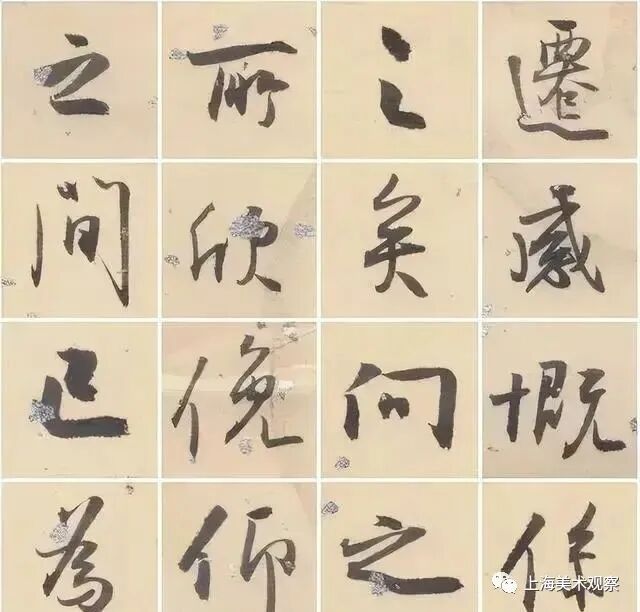 遷感慨係
之矣向之
所欣俛仰
之間已為
上海美术观察